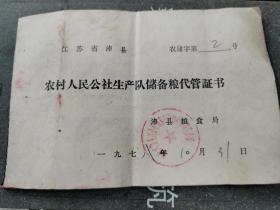 江苏省沛县 农储字第2号
农村人民公社生产队储备粮代管証书
沛县粮食局
一九七 年10月31日